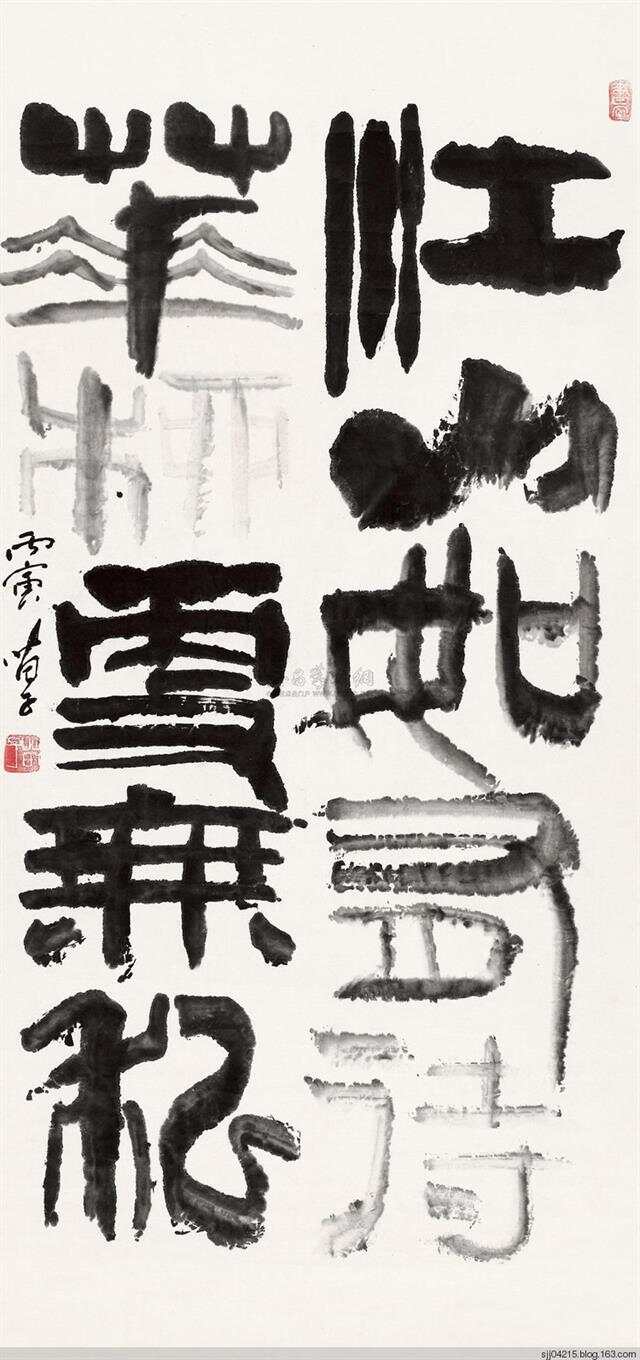 江山如有待
華柳更無私
丙寅 苗子
sjj04215.blog.163.com